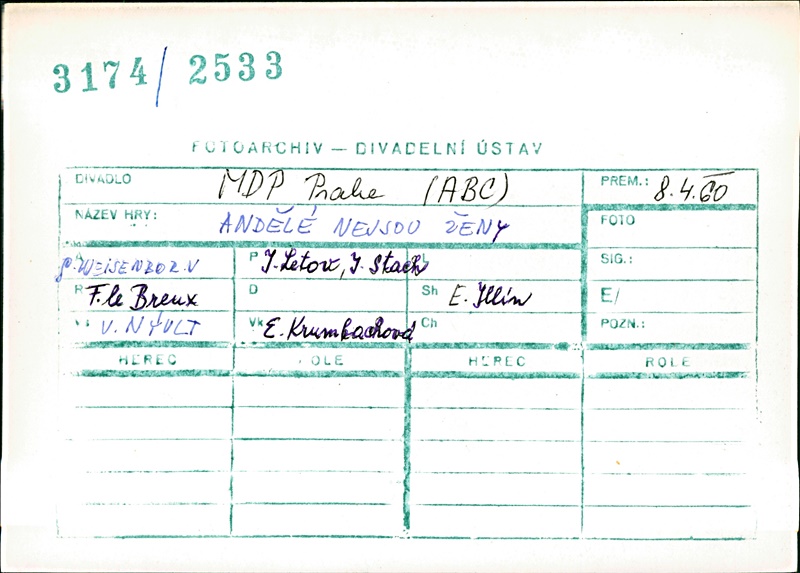 3174/2533
FOTOARCHIV — DIVADELNÍ ÚSTAV
DIVADLO MDP Praha (ABC) PREM.: 8.4.60
NÁZEV HRY: ANDĚLÉ NEJSOU ŽENY FOTO
WEISENBORN P J. Letov, J. Stach SIG.:
R F. le Breux D Sh E. Illín E/
V. NÝVLT Vk E. Krumbachová Ch POZN.:
HEREC ROLE HEREC ROLE